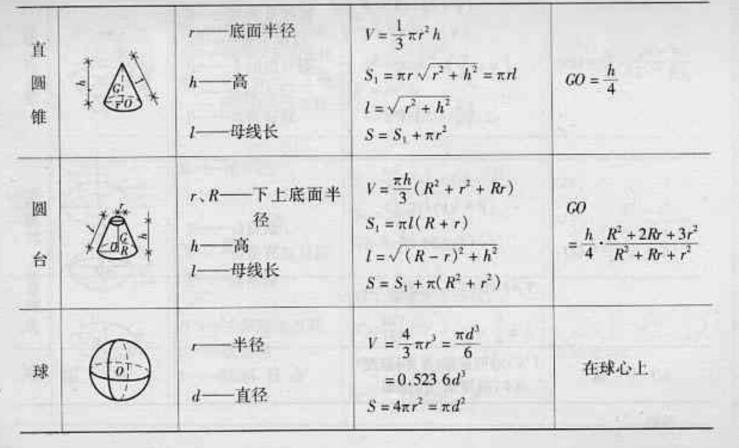 直圆锥
h
l
G
r
O
r——底面半径
h——高
l——母线长
V = 1/3 πr²h
S₁ = πr√(r² + h²) = πrl
l = √(r² + h²)
S = S₁ + πr²
GO = h/4
圆台
r
l
h
G
O
R
r、R——下上底面半
径
h——高
l——母线长
V = πh/3 (R² + r² + Rr)
S₁ = πl(R + r)
l = √((R − r)² + h²)
S = S₁ + π(R² + r²)
GO
= h/4 · (R² + 2Rr + 3r²)/(R² + Rr + r²)
球
O
r——半径
d——直径
V = 4/3 πr³ = πd³/6
= 0.523 6d³
S = 4πr² = πd²
在球心上